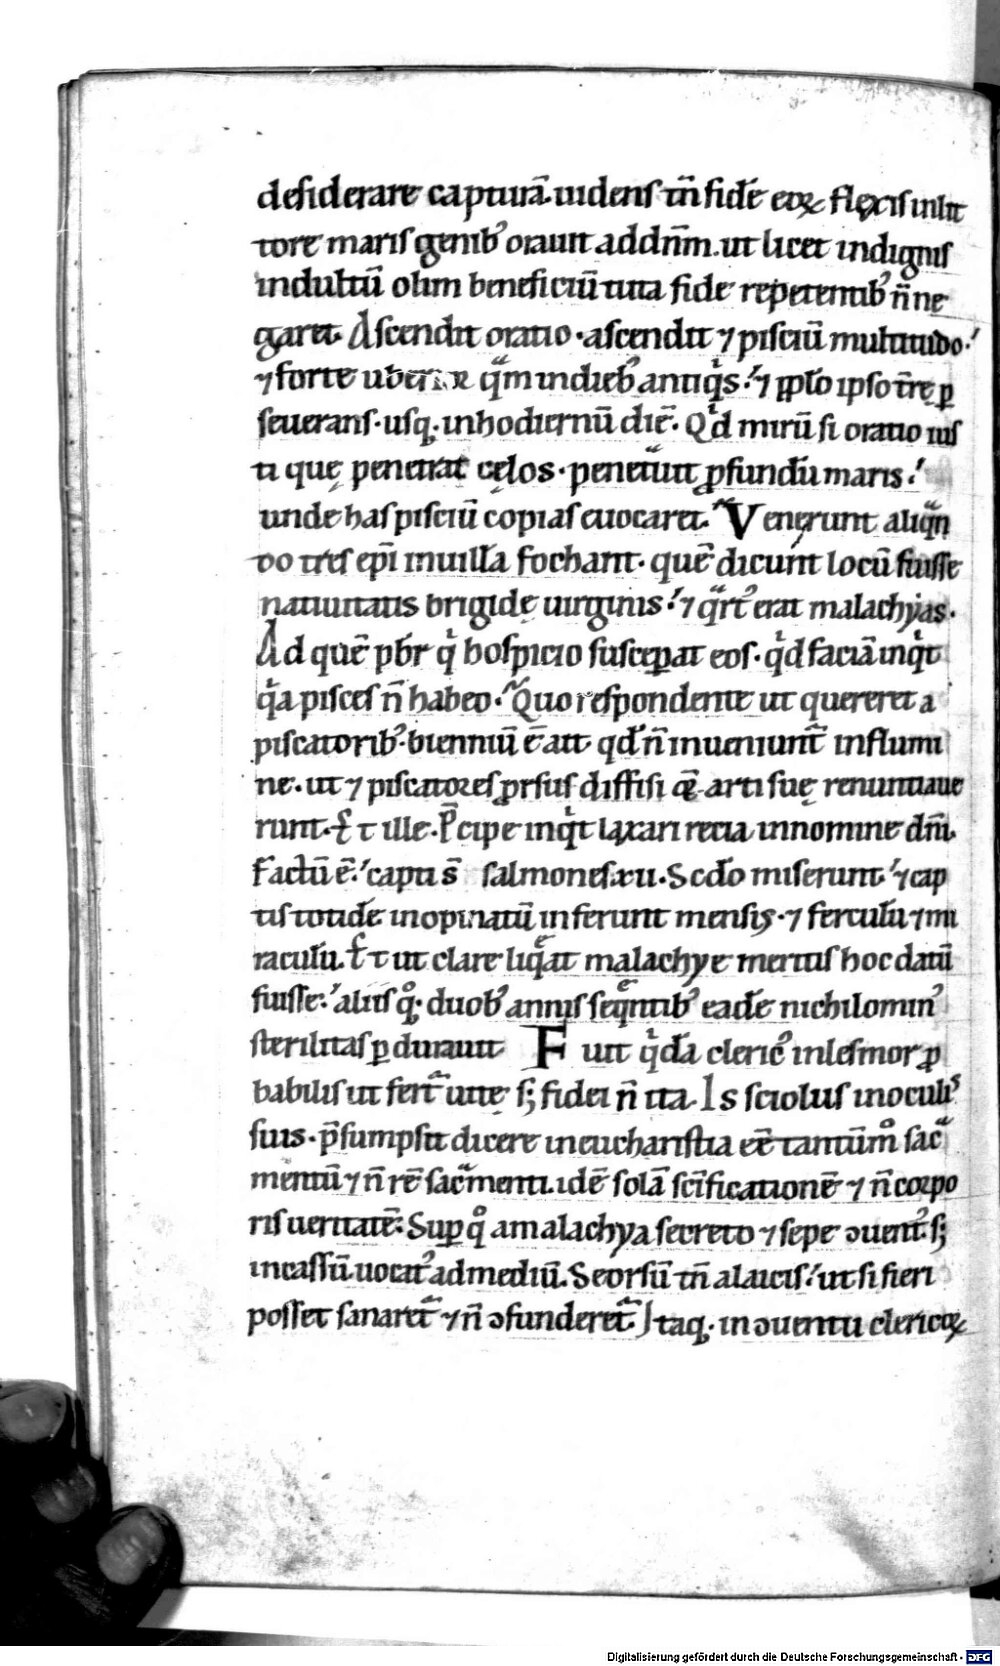 desiderare capturā. uidens tn̄ fidē eoꝝ flexis in lit
tore maris genibꝰ orauit ad dn̄m. ut licet indignis
indultū olim beneficiū tuta fide repetentibꝰ n̄ ne
garet. Ascendit oratio · ascendit ⁊ pisciū multitudo ·
⁊ forte uberior qͣm in diebꝰ antiqͥs. ⁊ ꝓpl̄o ipso tr̄ę ꝑ
seuerans · usqꝫ in hodiernū diē. Qͥd mirū si oratio ius
ti quę penetrat cęlos · penetͣuit ꝓfundū maris.
unde has pisciū copias euocaret. Venerunt aliqͣn
do tres ep̄i in uilla fochart · quē dicunt locū fuisse
natiuitatis brigidę uirginis. ⁊ qͣrtꝰ erat malachyas.
Ad quē pb̄r qͥ hospicio susceꝑat eos. qͥd faciā inqͥt
qͥa pisces n̄ habeo. Quo respondente ut quereret a
piscatoribꝰ · bienniū ē ait qd̄ n̄ inueniunt̄ in flumi
ne. ut ⁊ piscatores ꝓrsus diffisi arti suę renuntiaue
runt. Et ille. P̄cipe inqͥt laxari recia in nomine dn̄i.
Factū ē. capti s̄ salmones xii. Scd̄o miserunt. ⁊ cap
tis totidē inopinatū inferunt mensis · ⁊ ferculū ⁊ mi
raculū. Et ut clare liqͣeat malachye meritis hoc datū
fuisse. aliis qͦqꝫ duobꝰ annis seqͤntibꝰ eadē nichilominꝰ
sterilitas ꝑdurauit. Fuit qͥdā clericꝰ in lesmor ꝓ
babilis ut fert̄ uitę sꝫ fidei n̄ ita. Is sciolus in oculis
suis · p̄sumpsit dicere in eucharistia eē tantūmͦ sacͣ
mentū ⁊ n̄ rē sacͣmenti. idē solā sc̄ificationē ⁊ n̄ corpo
ris ueritatē. Suꝑ qͦ a malachya secreto ⁊ sepe ɔuentꝰ. sꝫ
incassū uocatꝰ ad mediū. Seorsū tn̄ a laicis. ut si fieri
posset sanaret̄ ⁊ n̄ ɔfunderet̄. Itaqꝫ. in ɔuentu clericoꝝ
Digitalisierung gefördert durch die Deutsche Forschungsgemeinschaft - DFG